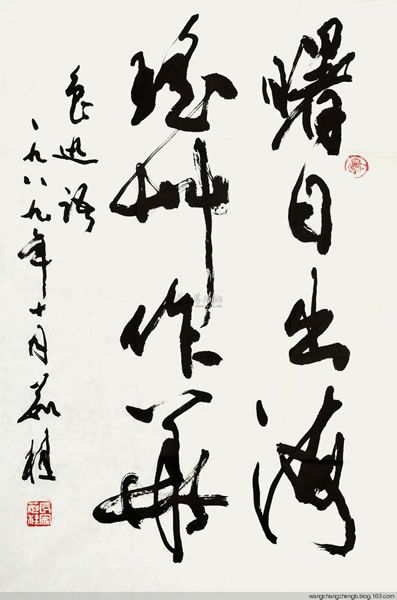 曙日出海
瑶艸作華
鲁迅语
一九八九年十月茹桂
wangchangzhengb.blog.163.com